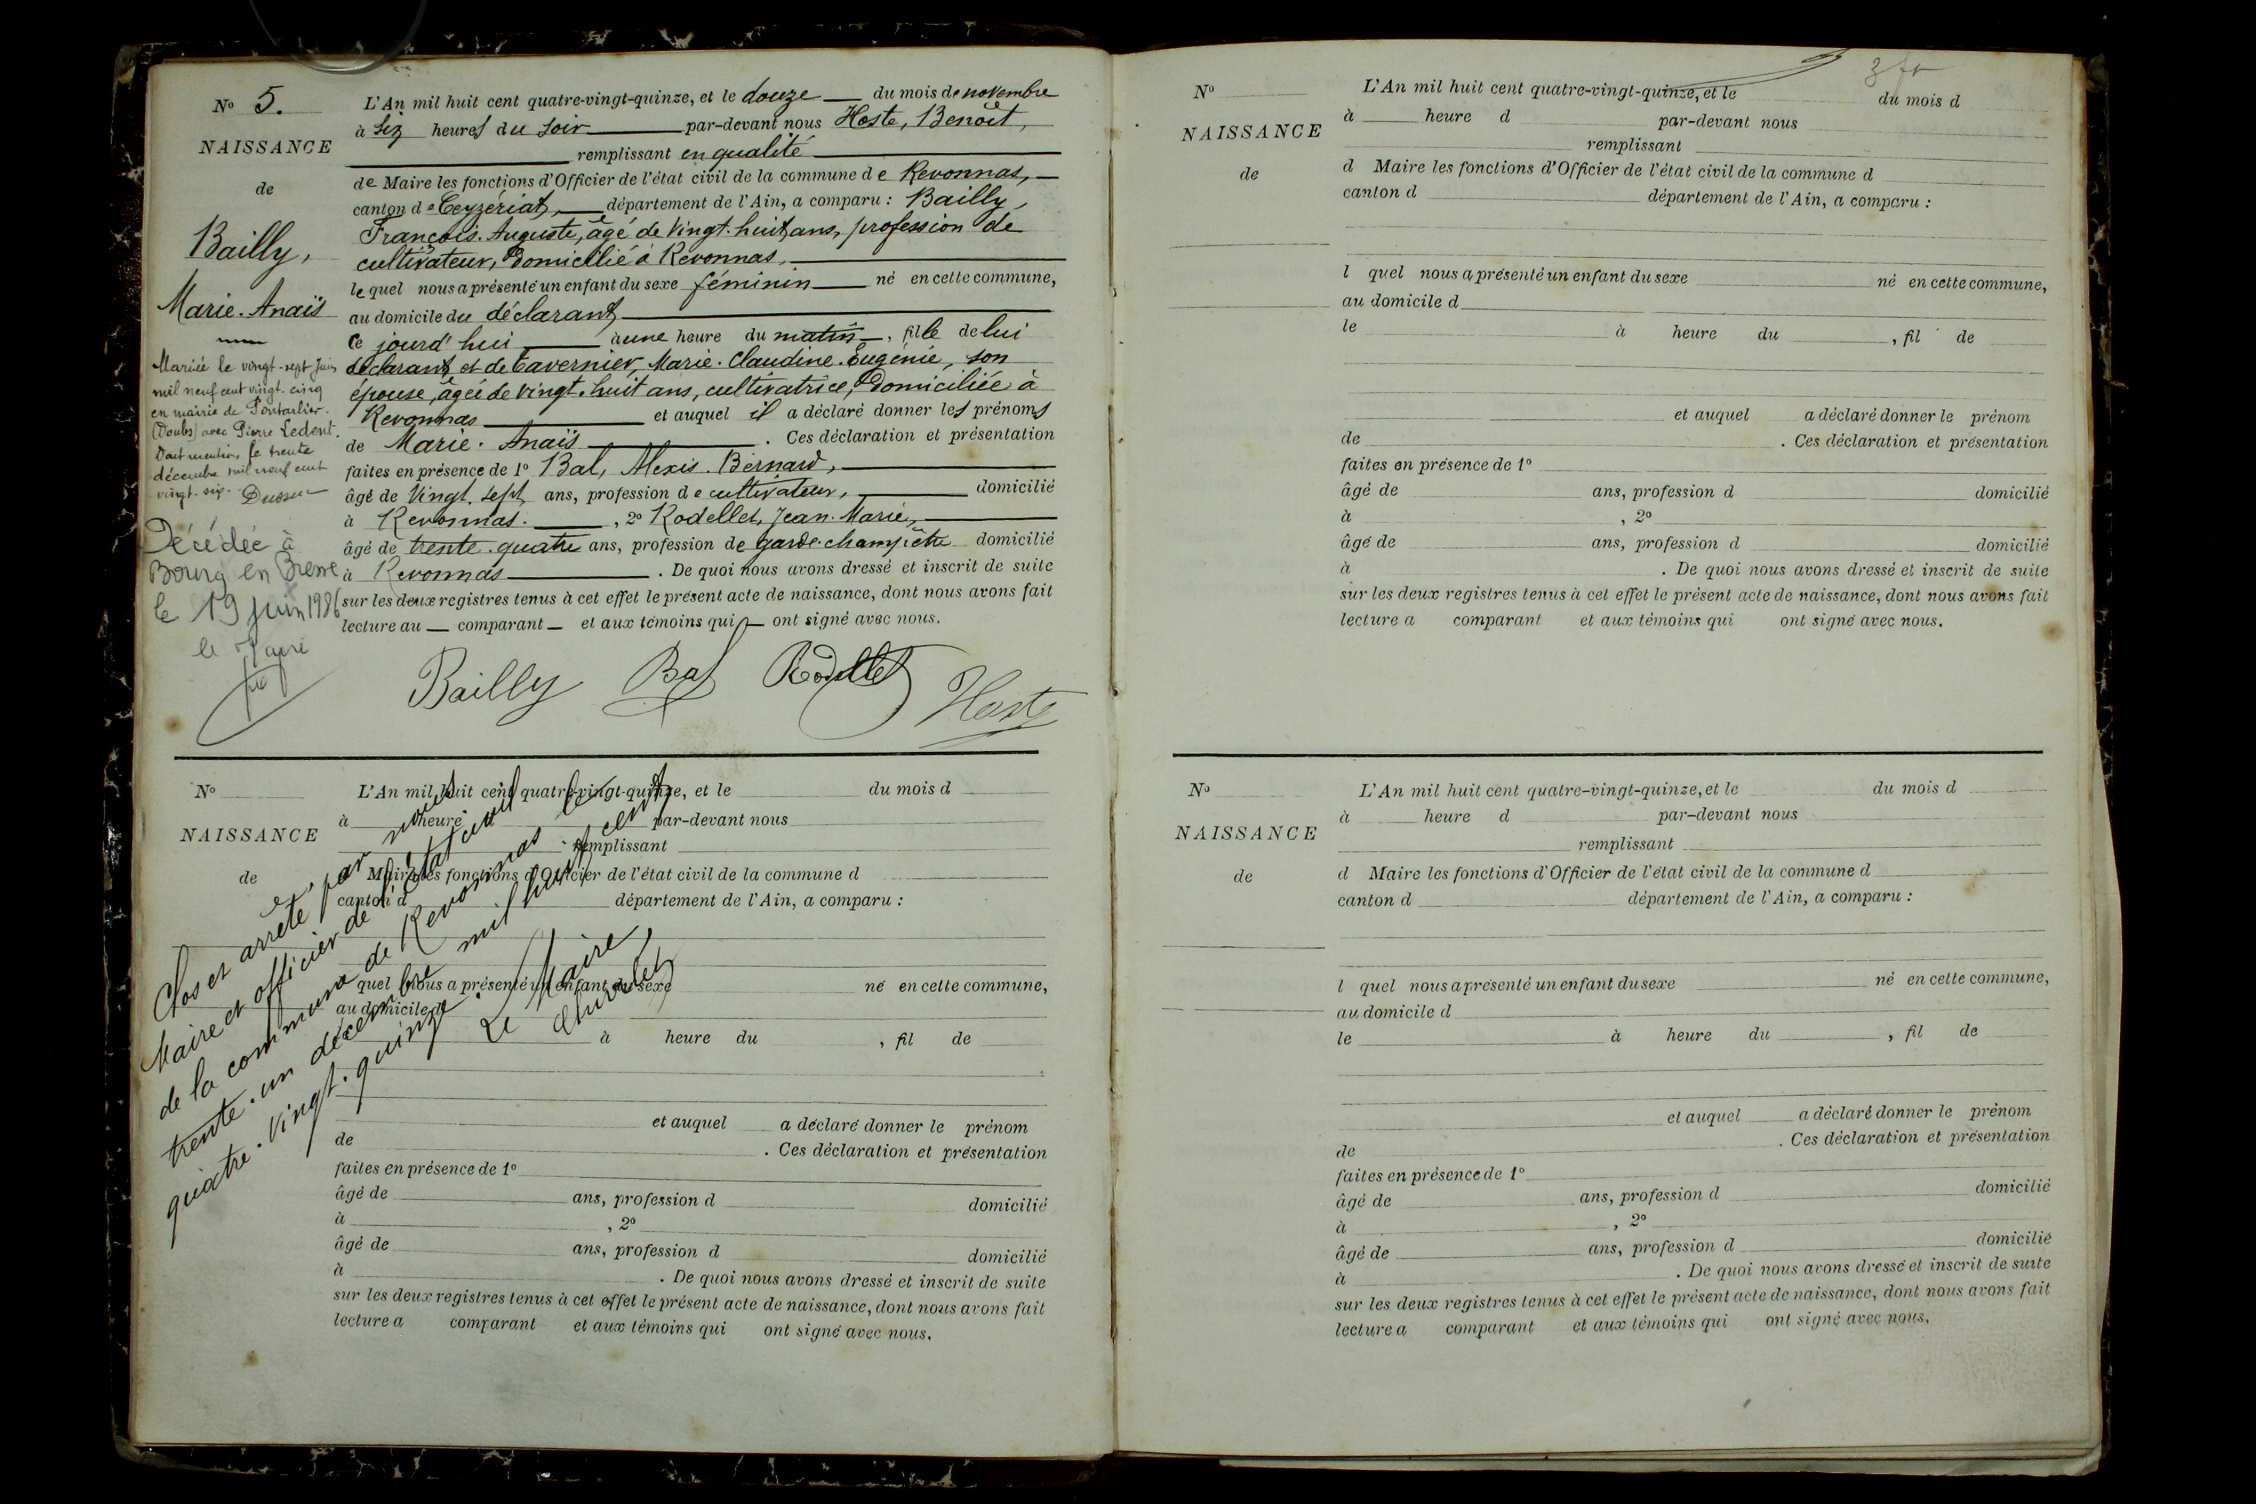 No 5.
NAISSANCE
de
Bailly,
Marie. Anaïs
Mariée le vingt-sept Juin
mil neuf cent vingt-cinq
en mairie de Pontarlier.
(Doubs) avec Pierre Ledent.
Dont mention, le trente
décembre mil neuf cent
vingt-six.
Décédée à
Bourg en Bresse
le 19 juin 1986
le Maire
L'An mil huit cent quatre-vingt-quinze, et le douze du mois de novembre
à six heures du soir par-devant nous Hoste, Benoît,
remplissant en qualité
de Maire les fonctions d'Officier de l'état civil de la commune de Revonnas,
canton de Ceyzériat, département de l'Ain, a comparu : Bailly,
François. Auguste, âgé de vingt. huit ans, profession de
cultivateur, domicilié à Revonnas,
lequel nous a présenté un enfant du sexe féminin né en cette commune,
au domicile du déclarant
ce jourd'hui à une heure du matin, fille de lui
déclarant et de Tavernier, Marie. Claudine. Eugénie, son
épouse, âgée de vingt. huit ans, cultivatrice, domiciliée à
Revonnas et auquel il a déclaré donner les prénoms
de Marie. Anaïs . Ces déclaration et présentation
faites en présence de 1o Bal, Alexis. Bernard,
âgé de vingt. sept ans, profession de cultivateur, domicilié
à Revonnas. , 2o Rodellet, Jean. Marie,
âgé de trente. quatre ans, profession de garde-champêtre domicilié
à Revonnas . De quoi nous avons dressé et inscrit de suite
sur les deux registres tenus à cet effet le présent acte de naissance, dont nous avons fait
lecture au comparant et aux témoins qui ont signé avec nous.
Bailly Bal Rodellet Hoste
No
NAISSANCE
de
L'An mil huit cent quatre-vingt-quinze, et le du mois d
à heure par-devant nous
remplissant
Maire les fonctions d'Officier de l'état civil de la commune d
canton d département de l'Ain, a comparu :
quel nous a présenté un enfant du sexe né en cette commune,
au domicile d
à heure du , fil de
et auquel a déclaré donner le prénom
de . Ces déclaration et présentation
faites en présence de 1o
âgé de ans, profession d domicilié
à , 2o
âgé de ans, profession d domicilié
à . De quoi nous avons dressé et inscrit de suite
sur les deux registres tenus à cet effet le présent acte de naissance, dont nous avons fait
lecture a comparant et aux témoins qui ont signé avec nous.
Clos et arrêté, par nous
Maire et officier de l'état civil
de la commune de Revonnas le
trente. un décembre mil huit cent
quatre. vingt. quinze.
Le Maire,
No
NAISSANCE
de
L'An mil huit cent quatre-vingt-quinze, et le du mois d
à heure d par-devant nous
remplissant
d Maire les fonctions d'Officier de l'état civil de la commune d
canton d département de l'Ain, a comparu :
l quel nous a présenté un enfant du sexe né en cette commune,
au domicile d
le à heure du , fil de
et auquel a déclaré donner le prénom
de . Ces déclaration et présentation
faites en présence de 1o
âgé de ans, profession d domicilié
à , 2o
âgé de ans, profession d domicilié
à . De quoi nous avons dressé et inscrit de suite
sur les deux registres tenus à cet effet le présent acte de naissance, dont nous avons fait
lecture a comparant et aux témoins qui ont signé avec nous.
No
NAISSANCE
de
L'An mil huit cent quatre-vingt-quinze, et le du mois d
à heure d par-devant nous
remplissant
d Maire les fonctions d'Officier de l'état civil de la commune d
canton d département de l'Ain, a comparu :
l quel nous a présenté un enfant du sexe né en cette commune,
au domicile d
le à heure du , fil de
et auquel a déclaré donner le prénom
de . Ces déclaration et présentation
faites en présence de 1o
âgé de ans, profession d domicilié
à , 2o
âgé de ans, profession d domicilié
à . De quoi nous avons dressé et inscrit de suite
sur les deux registres tenus à cet effet le présent acte de naissance, dont nous avons fait
lecture a comparant et aux témoins qui ont signé avec nous.